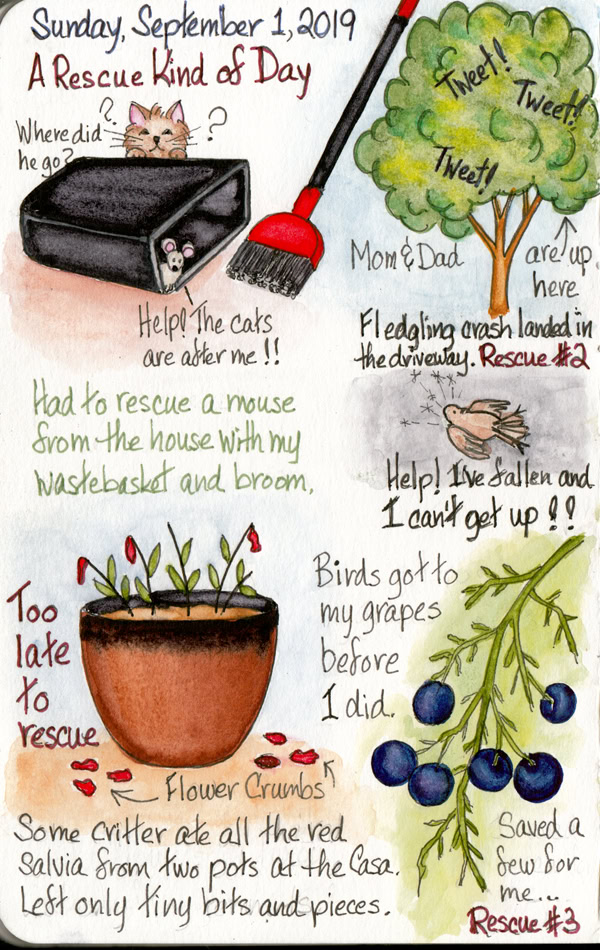 Sunday, September 1, 2019
A Rescue Kind of Day
? ?
Where did
he go?
Help! The cats
are after me!!
Had to rescue a mouse
from the house with my
wastebasket and broom.
Tweet!
Tweet!
Tweet!
Mom & Dad
are up
here
Fledgling crash landed in
the driveway. Rescue #2
Help! I've fallen and
I can't get up!!
Too
late
to
rescue
Flower Crumbs
Some critter ate all the red
salvia from two pots at the Casa.
Left only tiny bits and pieces.
Birds got to
my grapes
before
I did.
Saved a
few for
me...
Rescue #3